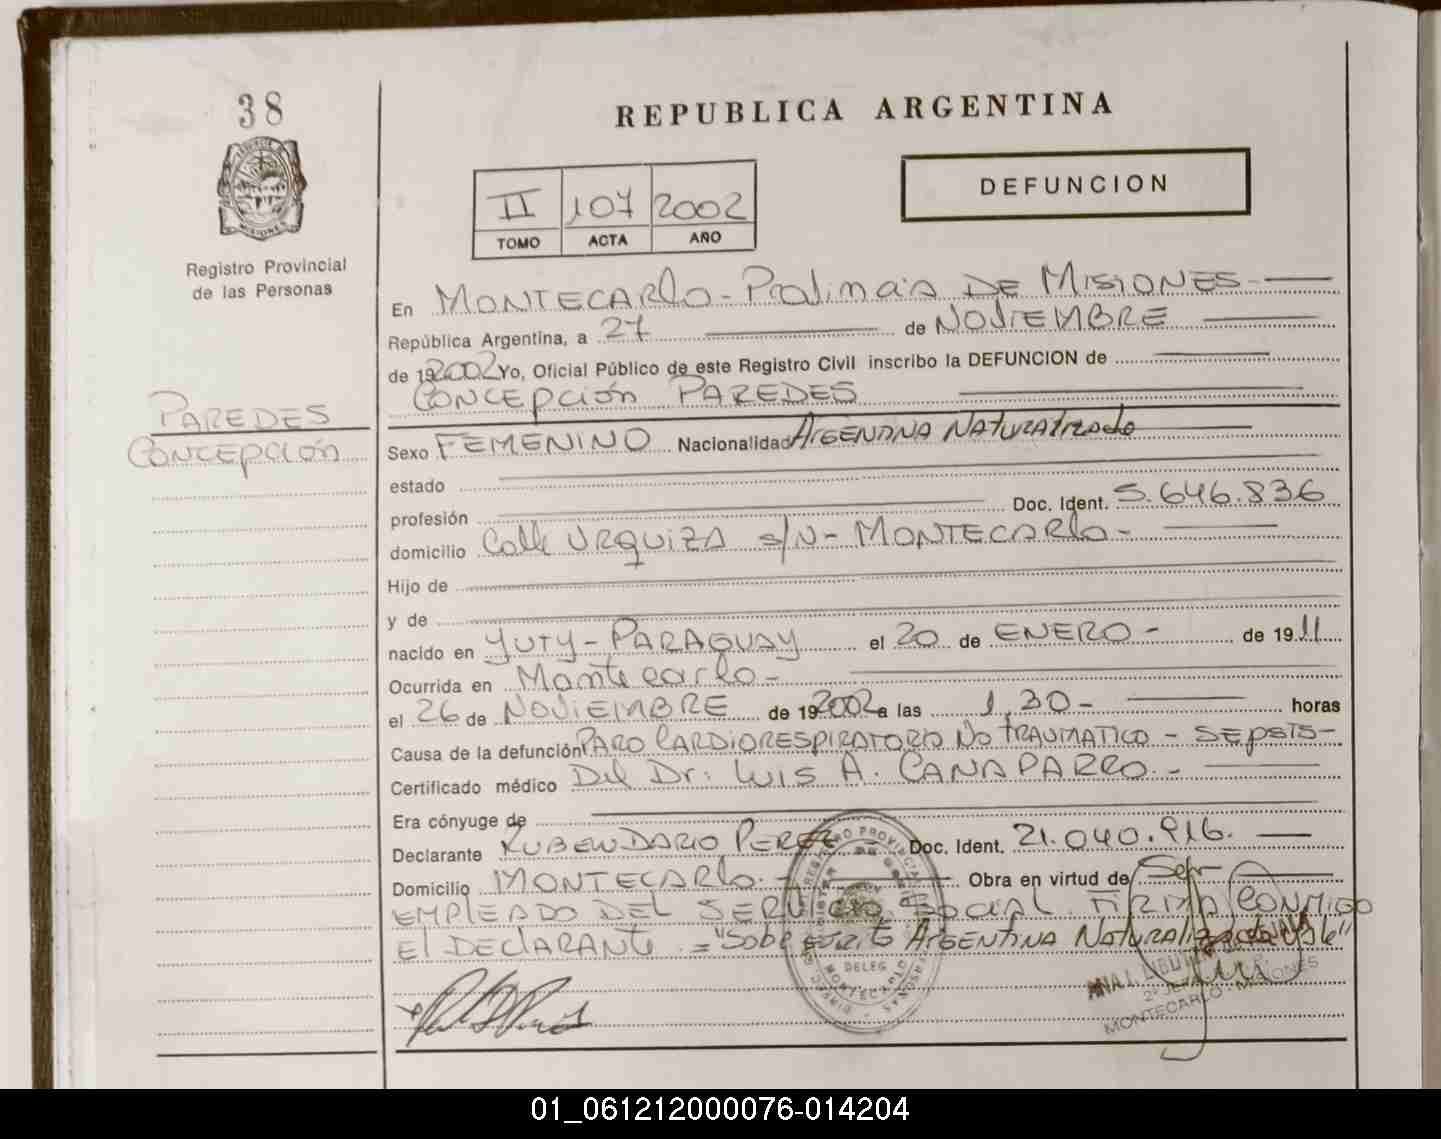 38
REPUBLICA ARGENTINA
DEFUNCION
II 107 2002
TOMO ACTA AÑO
MISIONES
Registro Provincial
de las Personas
PAREDES
CONCEPCIÓN
En MONTECARLO - Provincia DE MISIONES -
República Argentina, a 27 de NOVIEMBRE
de 192002 Yo, Oficial Público de este Registro Civil inscribo la DEFUNCION de
CONCEPCIÓN PAREDES
Sexo FEMENINO Nacionalidad ARGENTINA NATURALIZADA
estado
profesión Doc. Ident. 5.646.836
domicilio Calle URQUIZA s/N - MONTECARLO -
Hijo de
y de
nacido en YUTY - PARAGUAY el 20 de ENERO - de 1911
Ocurrida en Montecarlo -
el 26 de NOVIEMBRE de 192002 a las 1,30 - horas
Causa de la defunción PARO CARDIORESPIRATORIO NO TRAUMATICO - SEPSIS -
Certificado médico Del Dr: LUIS A. CANAPARRO. -
Era cónyuge de
Declarante RUBEN DARIO PEREZ Doc. Ident. 21.040.916.
Domicilio MONTECARLO. - Obra en virtud de Ser
EMPLEADO DEL SERVICIO SOCIAL. FIRMA CONMIGO
El DECLARANTE. = "Sobre escrito ARGENTINA NATURALIZADA Vale"
DELEG
MONTECARLO
2º JEFE
MONTECARLO - MISIONES
01_061212000076-014204